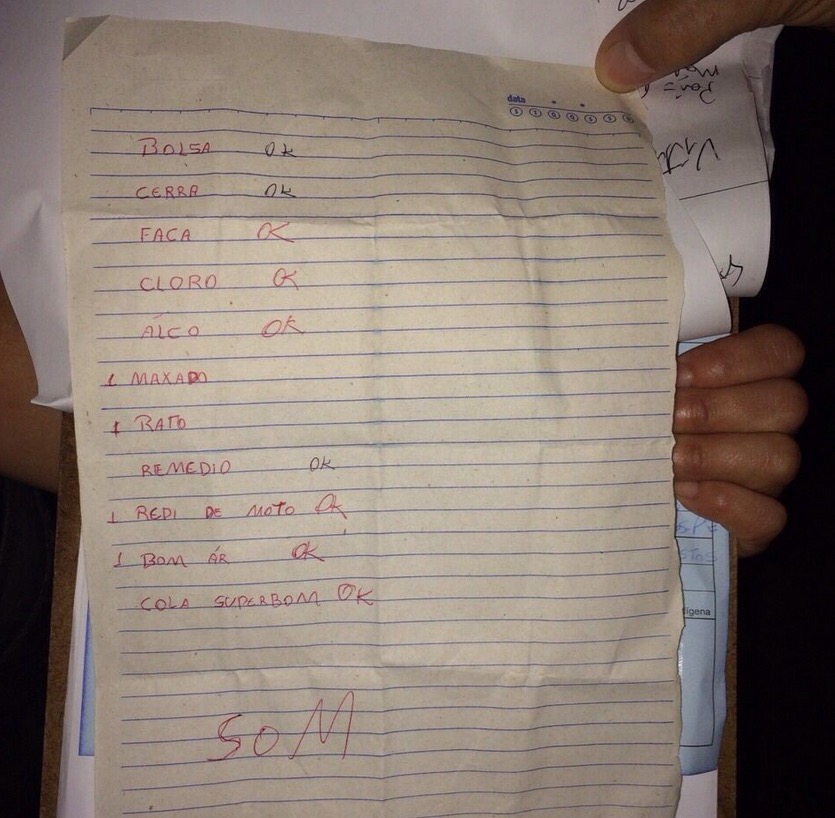 data
BOLSA OK
CERRA OK
FACA OK
CLORO OK
ÁLCO OK
1 MAXADO
1 RATO
REMEDIO OK
1 REDI DE MOTO OK
1 BOM ÁR OK
COLA SUPERBOM OK
SOM